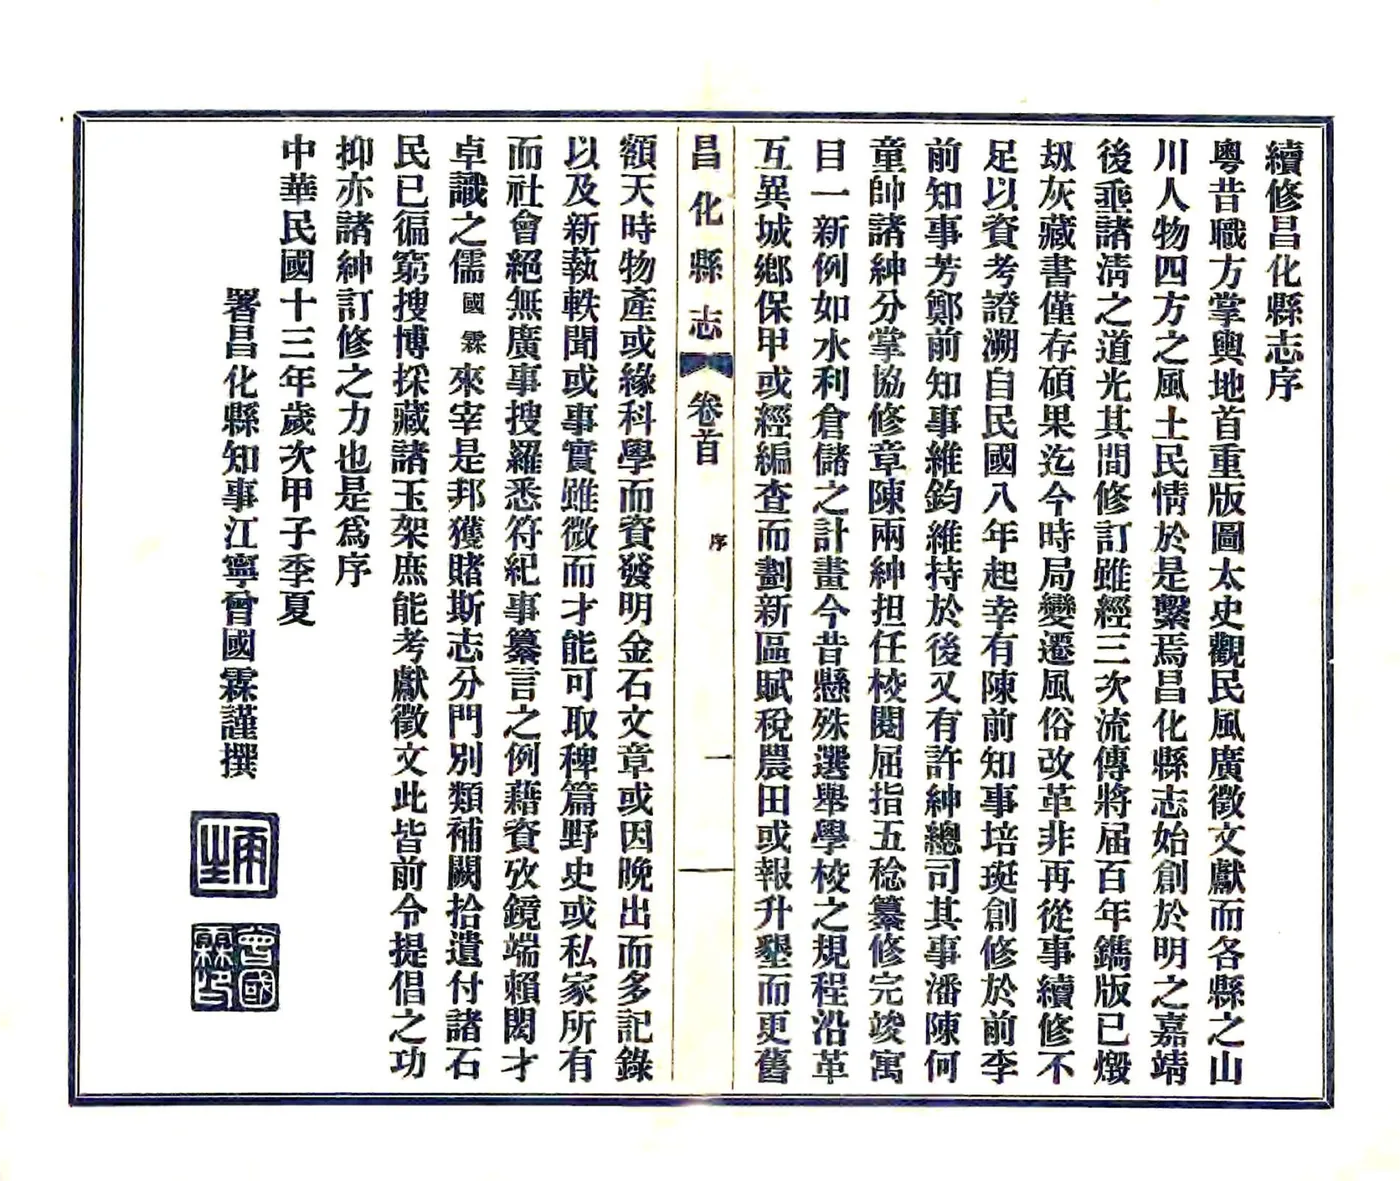 續修昌化縣志序
粵昔職方掌輿地首重版圖太史觀民風廣徵文獻而各縣之山
川人物四方之風土民情於是繫焉昌化縣志始創於明之嘉靖
後乖諸淸之道光其間修訂雖經三次流傳將屆百年鐫版已燬
刼灰藏書僅存碩果迄今時局變遷風俗改革非再從事續修不
足以資考證溯自民國八年起幸有陳前知事培珽創修於前李
前知事芳鄭前知事維鈞維持於後又有許紳總司其事潘陳何
童帥諸紳分掌協修章陳兩紳担任校閱屈指五稔纂修完竣寓
目一新例如水利倉儲之計畫今昔懸殊選舉學校之規程沿革
互異城鄉保甲或經編查而劃新區賦稅農田或報升墾而更舊
昌化縣志
卷首
序
一
額天時物產或緣科學而資發明金石文章或因晚出而多記錄
以及新蓺軼聞或事實雖微而才能可取稗篇野史或私家所有
而社會絕無廣事搜羅悉符紀事纂言之例藉資攷鏡端賴閎才
卓識之儒國霖來宰是邦獲賭斯志分門別類補闕拾遺付諸石
民已徧窮搜博採藏諸玉架庶能考獻徵文此皆前令提倡之功
抑亦諸紳訂修之力也是爲序
中華民國十三年歲次甲子季夏
署昌化縣知事江寧曾國霖謹撰
曾國霖印